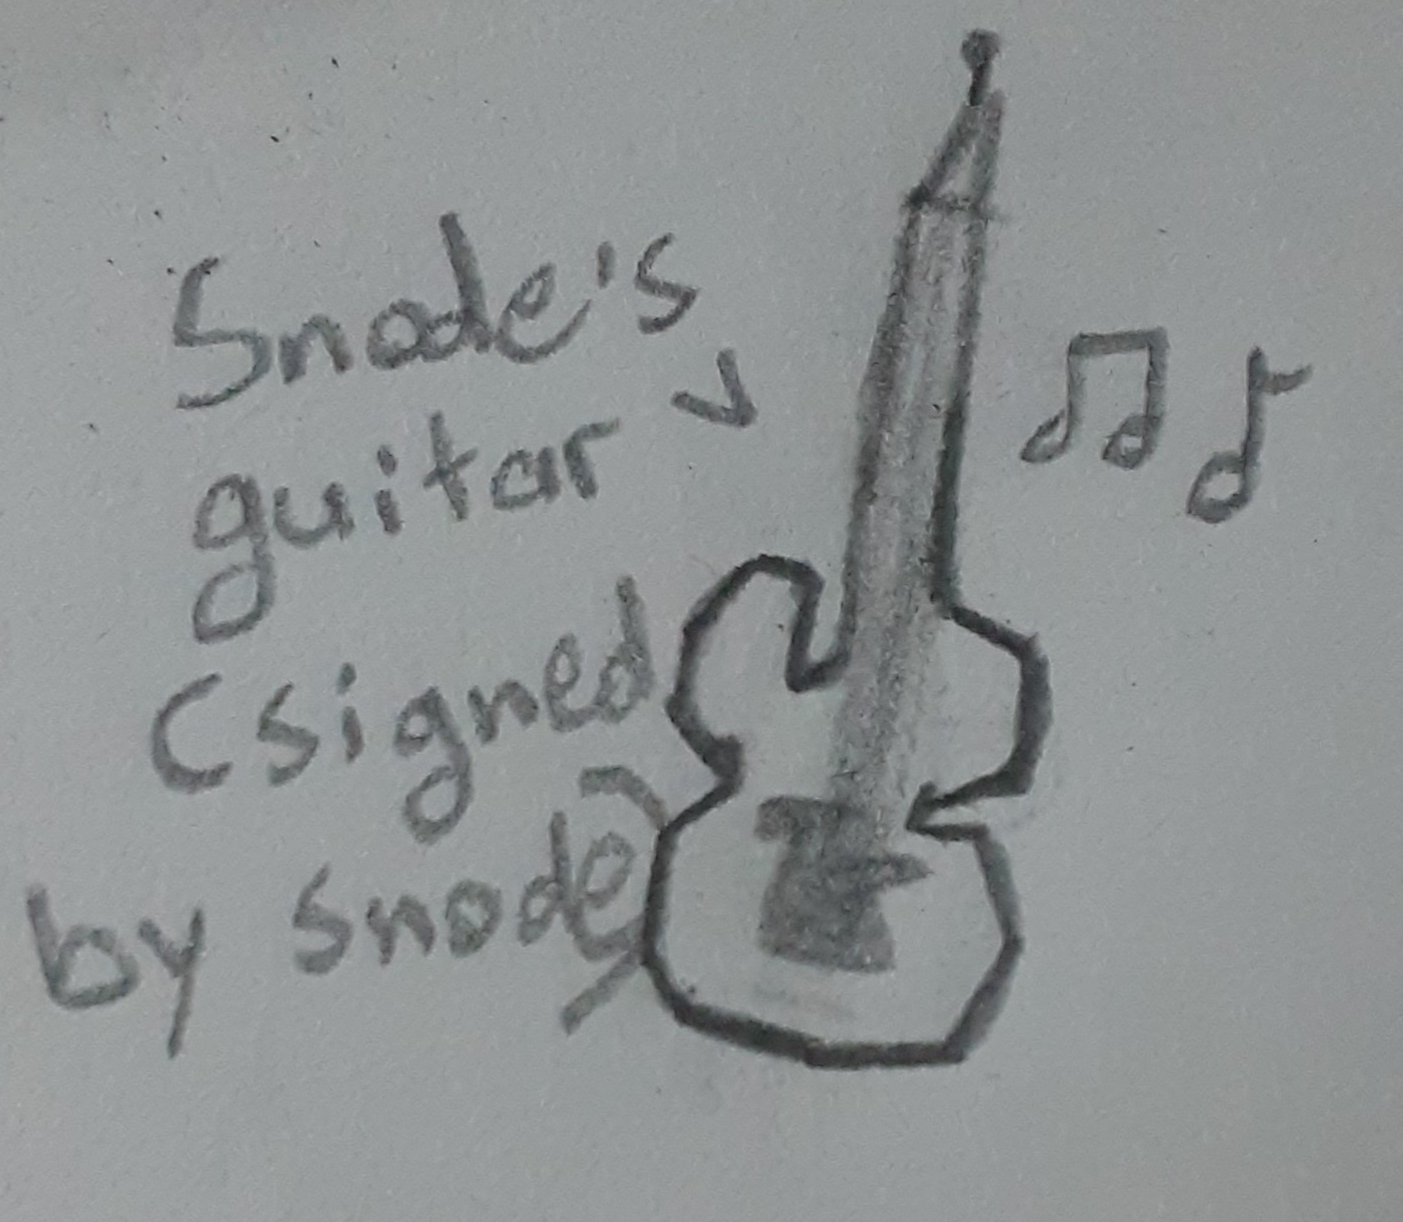 Snode's
guitar
(signed
by Snode)